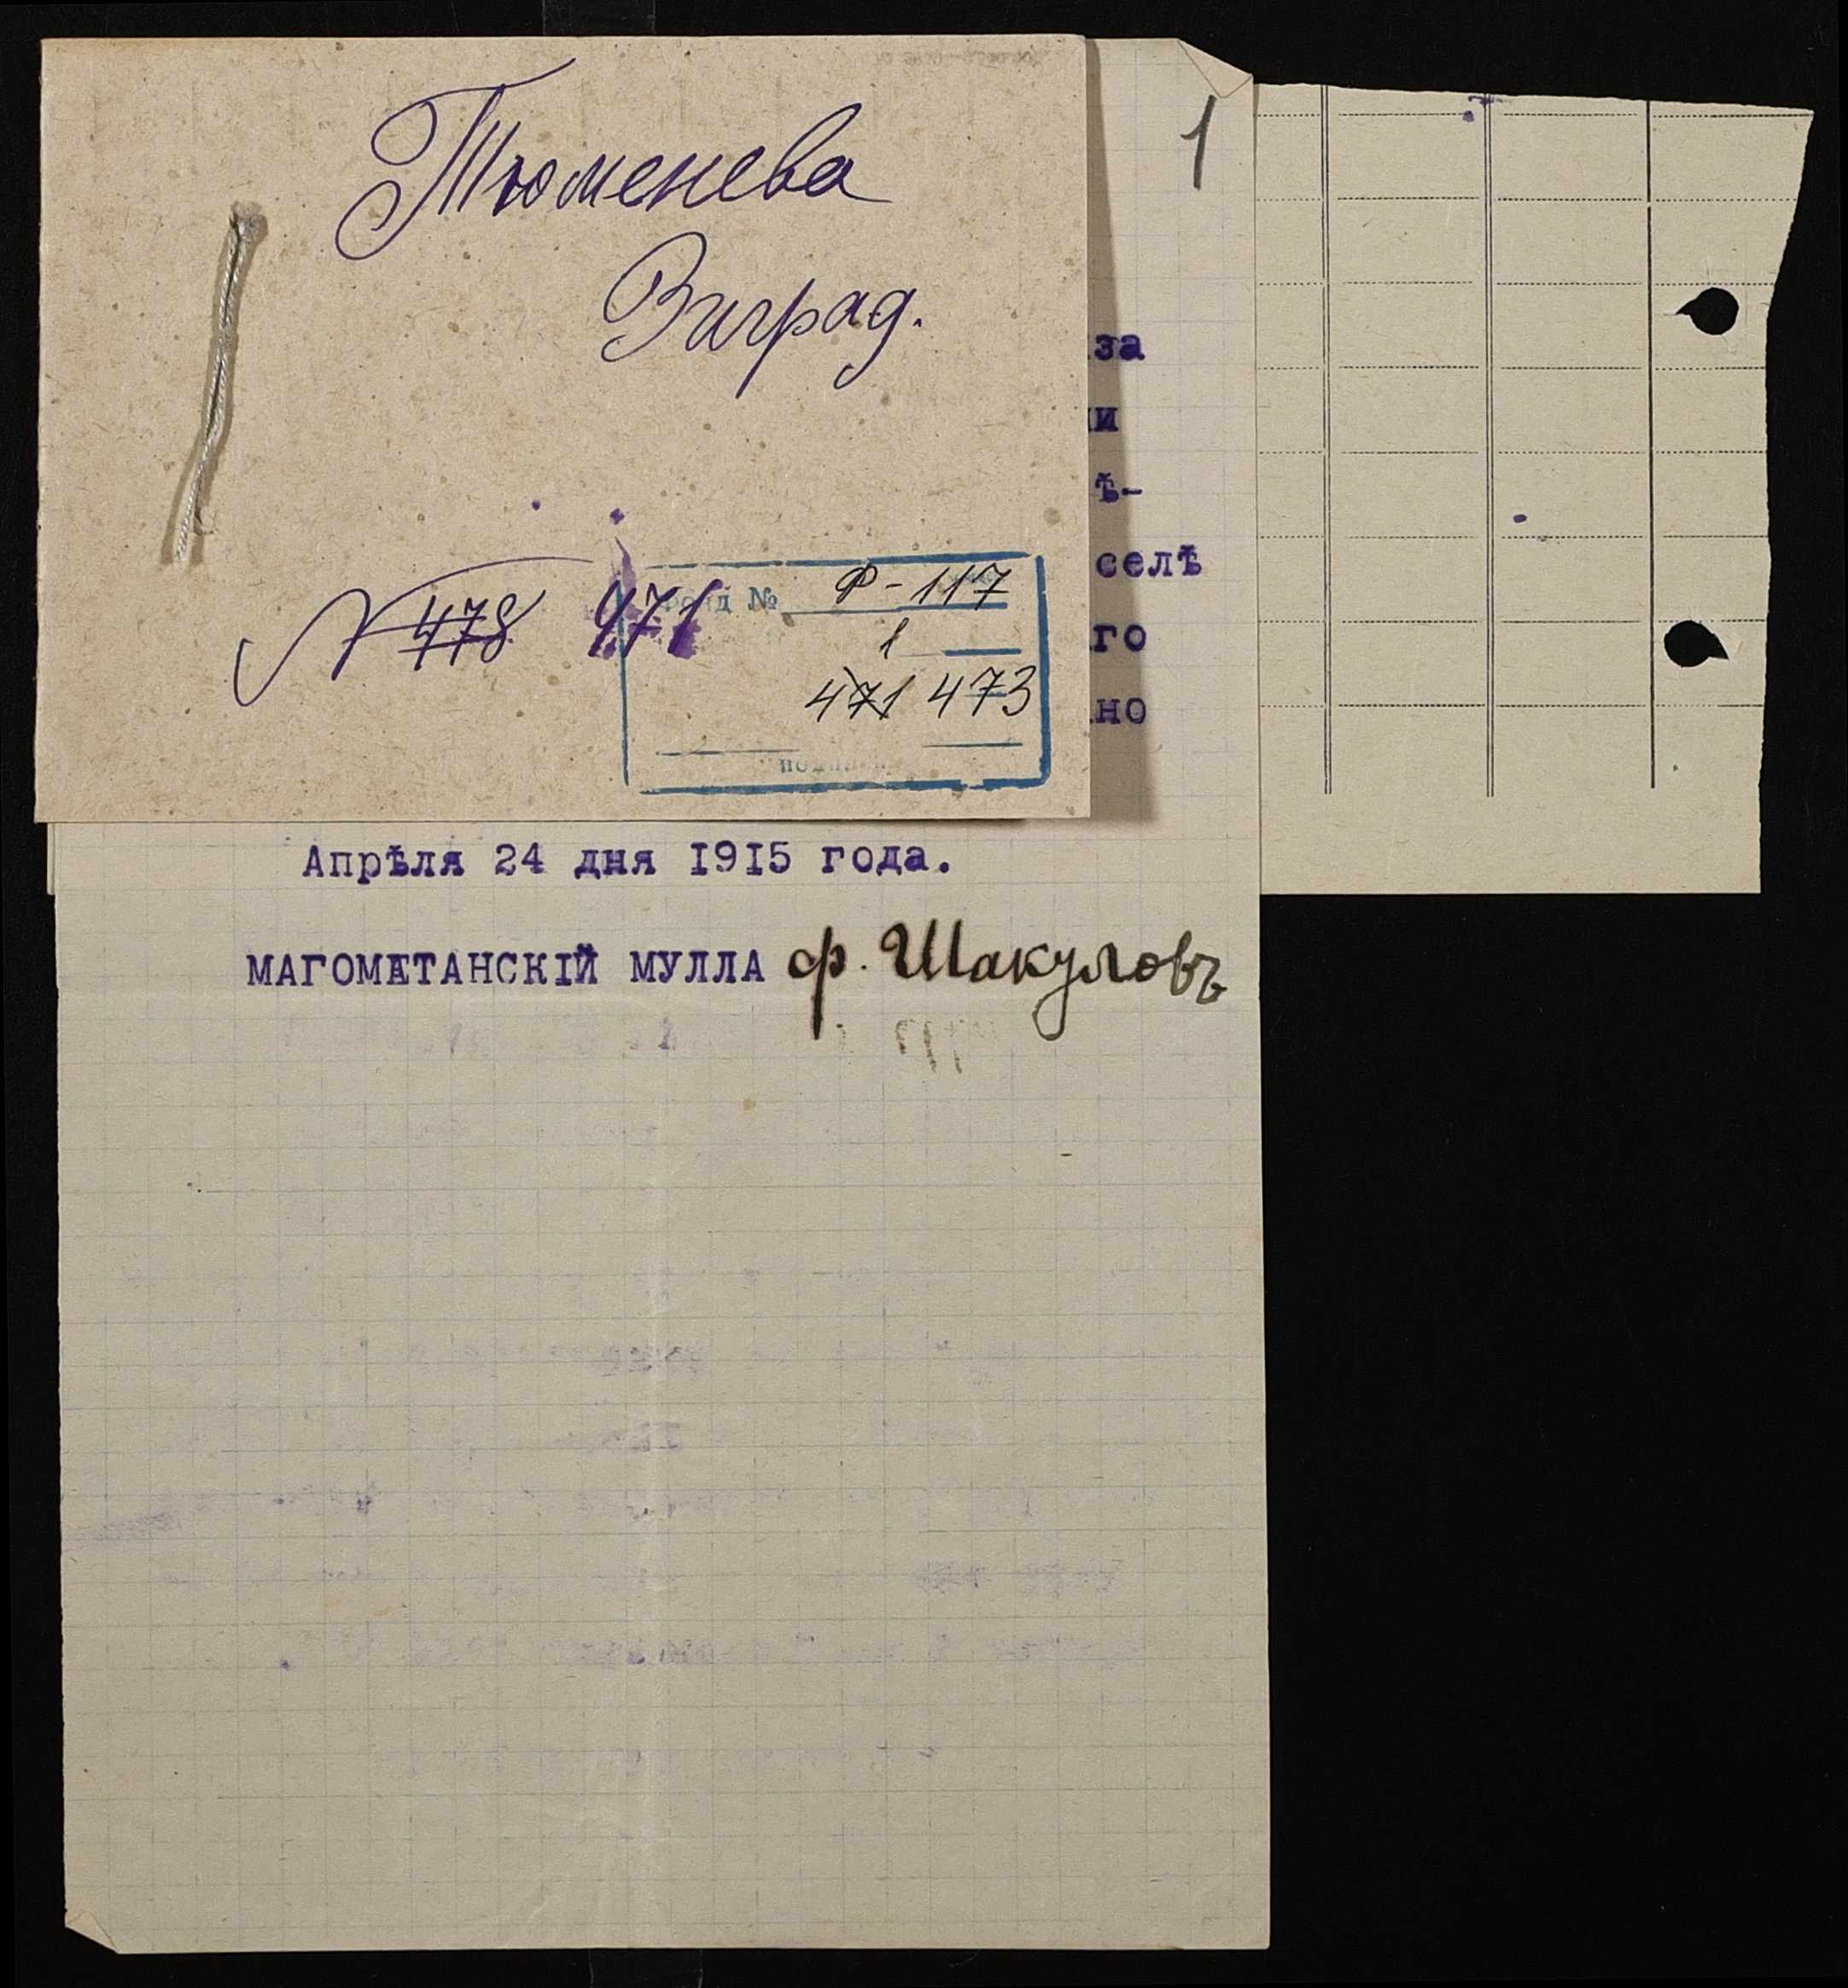 Тюменева
Зиград.
1
за
и
ѣ-
селѣ
го
но
N 478 471
Фонд № Ф-117
1
471 473
Апрѣля 24 дня 1915 года.
МАГОМЕТАНСКІЙ МУЛЛА ф. Шакуловъ